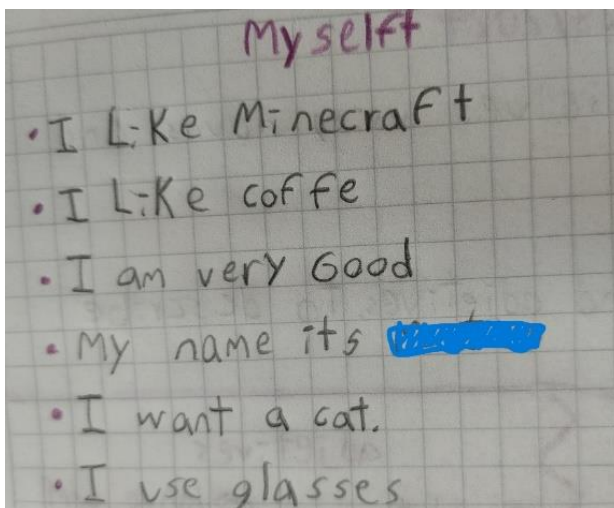 Myselft
• I Like Minecraft
• I Like coffe
• I am very Good
• My name its
• I want a cat.
• I use glasses